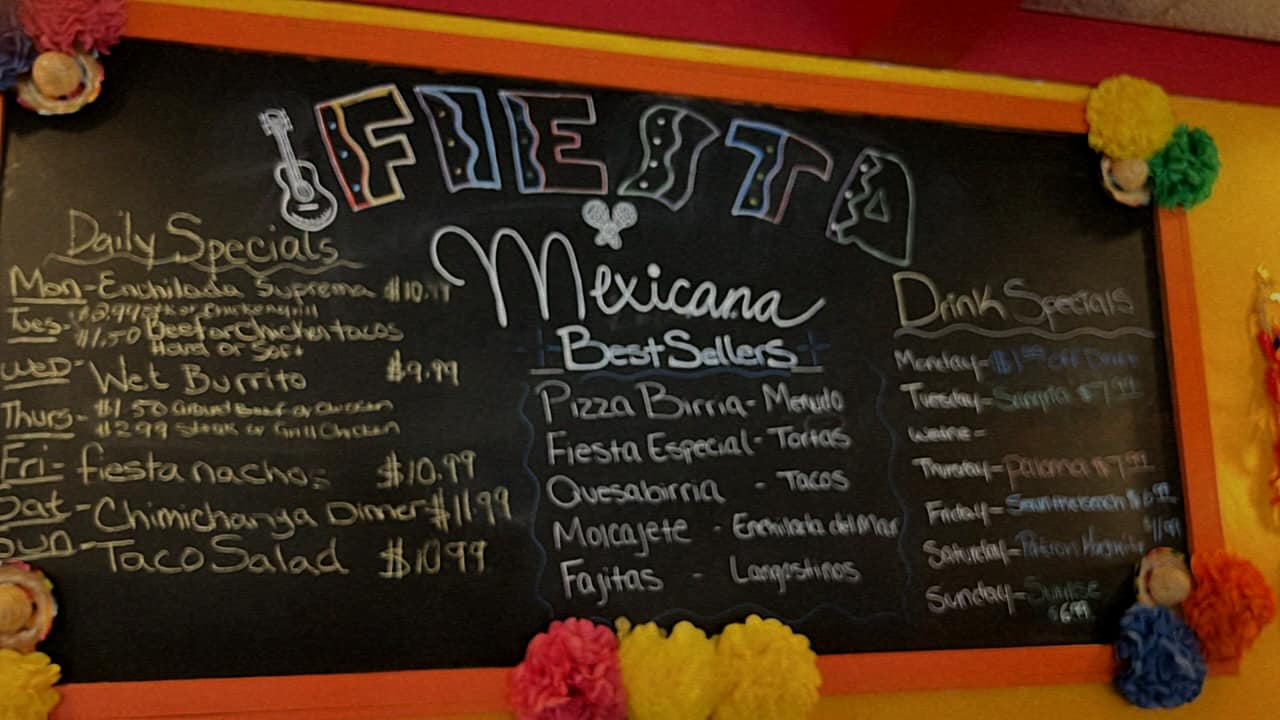 FIESTA
Mexicana
Daily Specials
Mon-Enchilada Suprema $10.99
Tues- $2.99 Stk or Chicken grill
$1.50 Beef or Chicken tacos
Hard or Soft
WED- Wet Burrito $9.99
Thurs- $1.50 Ground Beef or Chicken
$2.99 Steak or Grill Chicken
Fri- fiesta nachos $10.99
Sat-Chimichanga Dinner $11.99
Sun-Taco Salad $10.99
Best Sellers
Pizza Birria- Menudo
Fiesta Especial- Tortas
Quesabirria - Tacos
Molcajete - Enchilada del Mar
Fajitas - Langostinos
Drink Specials
Monday- off
Tuesday- $7.99
Thursday-Paloma $7.99
Friday-
Saturday-Patron
Sunday-Sunrise
$6.99